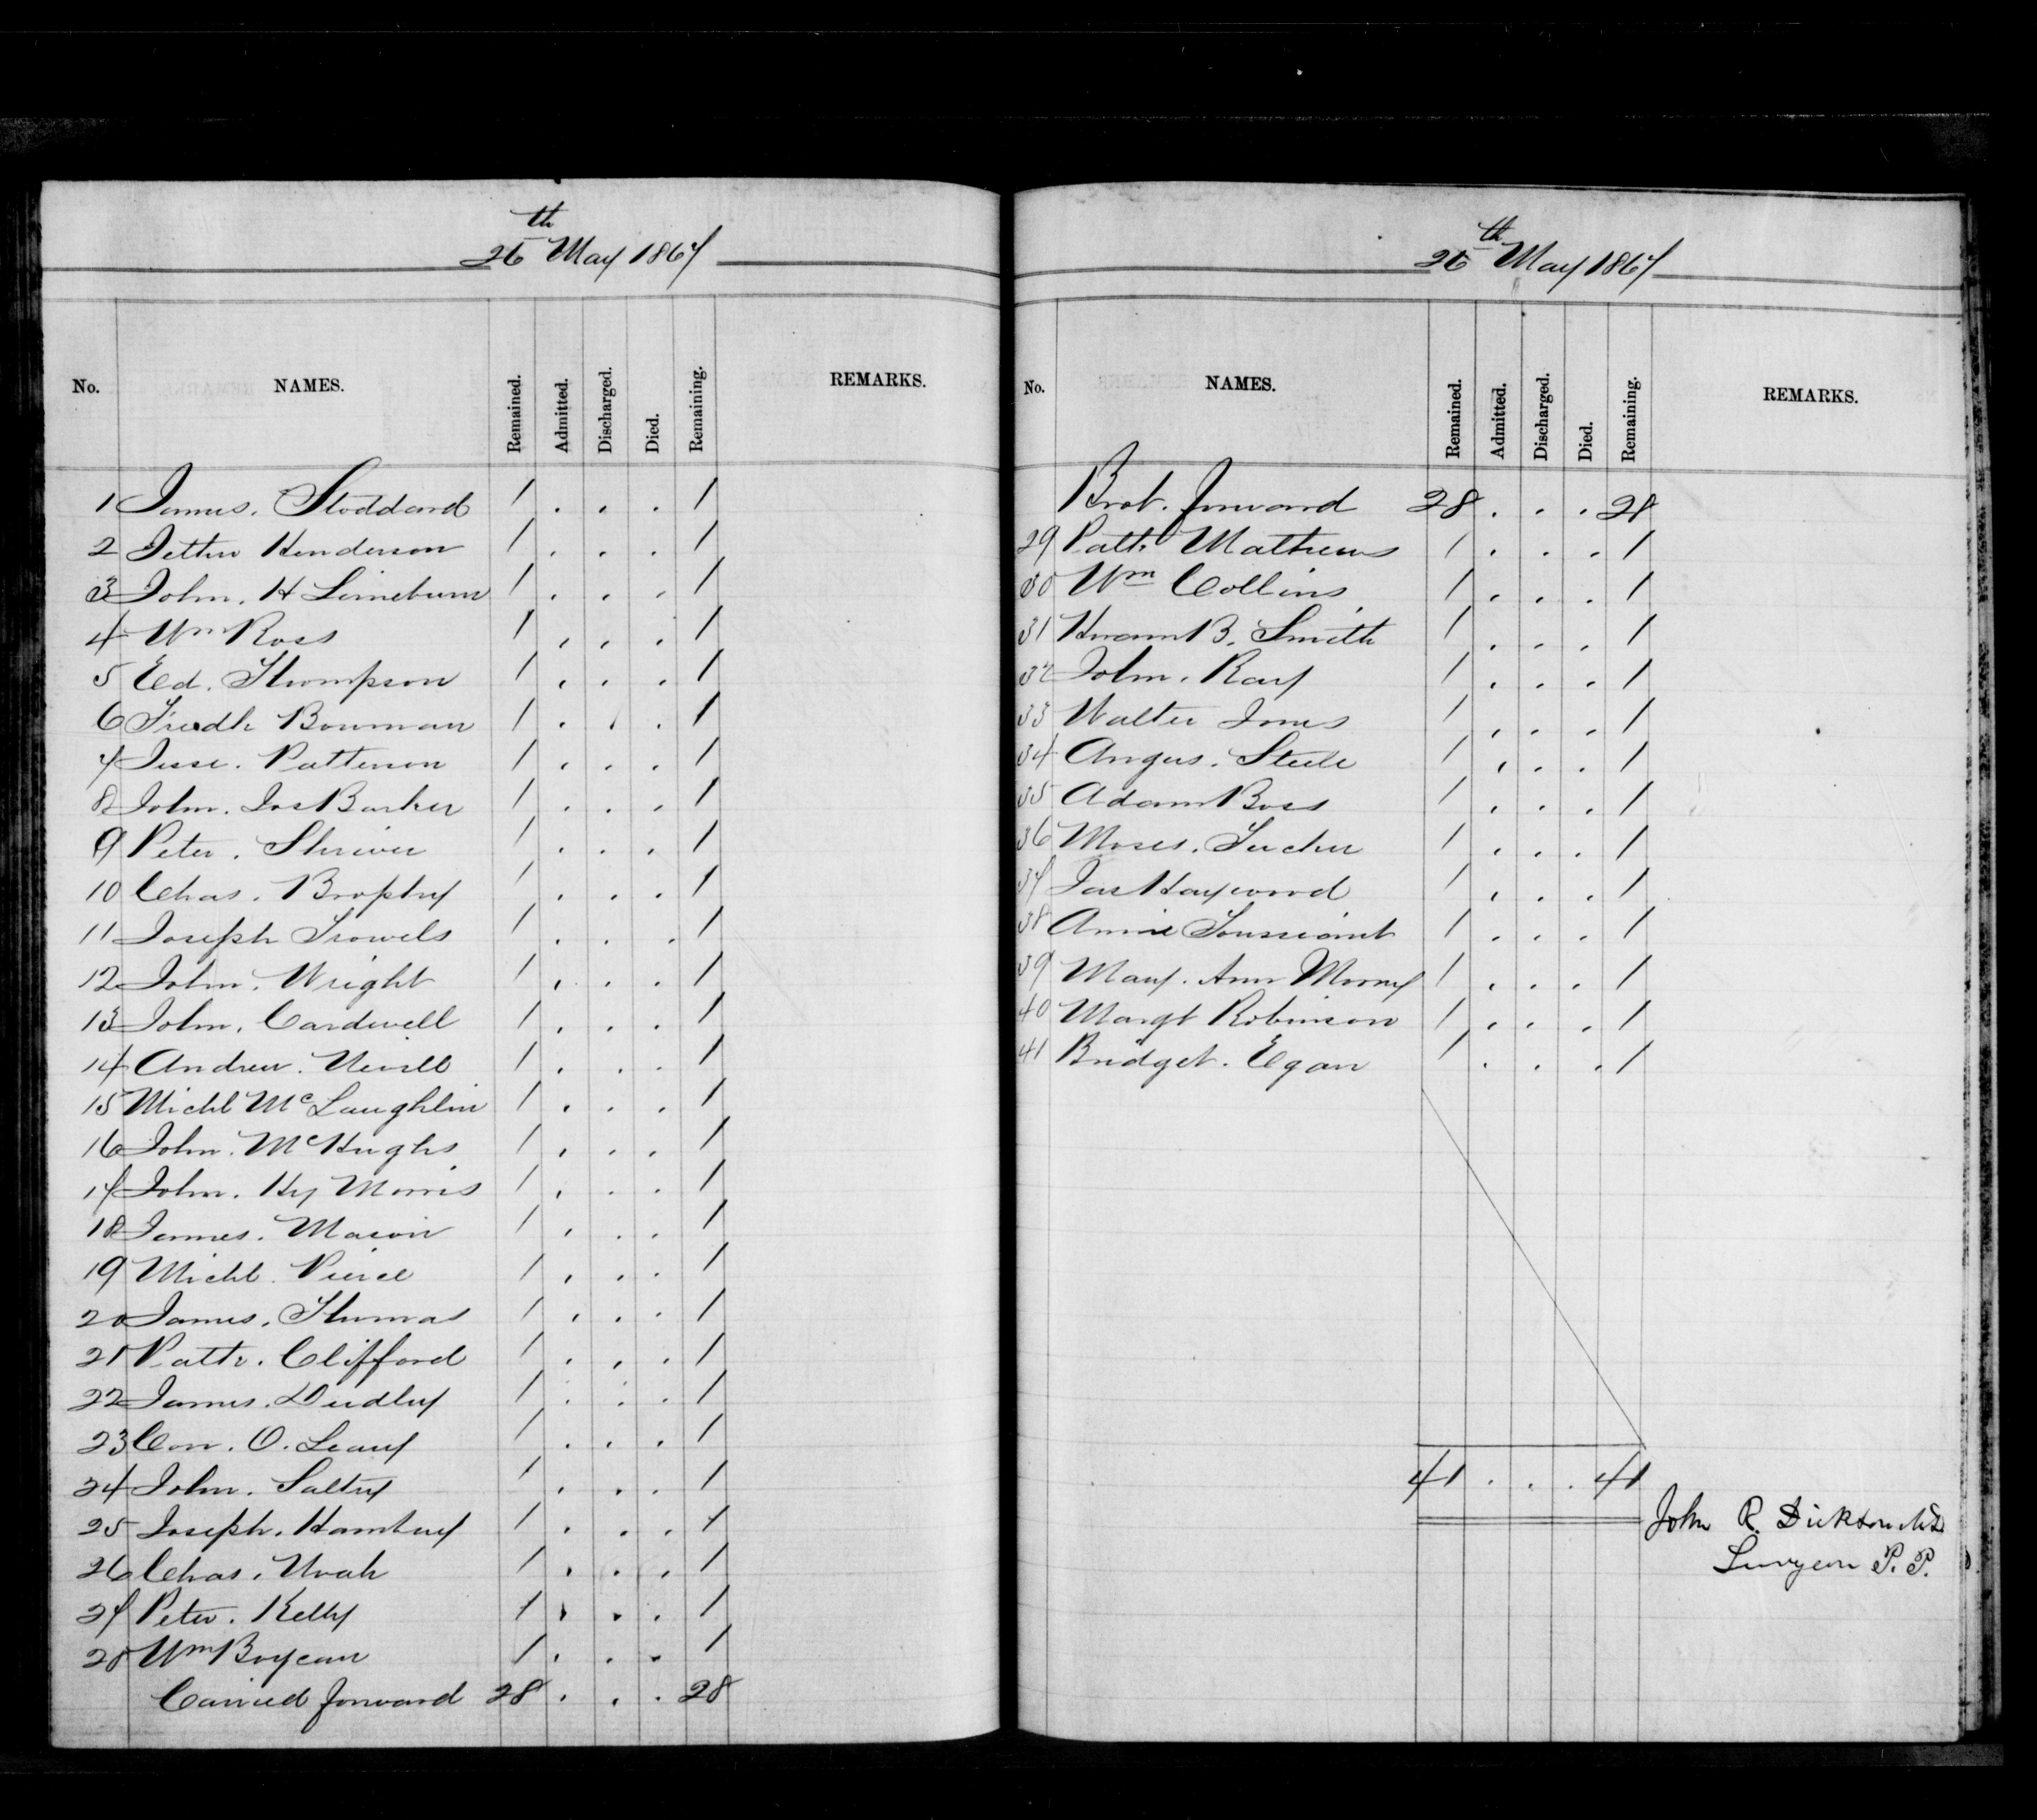 26th May 1867
No. NAMES. Remained. Admitted. Discharged. Died. Remaining. REMARKS.
1 James. Stoddard 1 . . . 1
2 Henderson 1 . . . 1
3 John. H 1 . . . 1
4 Wm Ross 1 . . . 1
5 Ed. Thompson 1 . . . 1
6 Fredk Bowman 1 . . . 1
7 Jesse. Patterson 1 . . . 1
8 John. Jos Barker 1 . . . 1
9 Peter. Shriver 1 . . . 1
10 Chas. Brophy 1 . . . 1
11 Joseph Trowels 1 . . . 1
12 John. Wright 1 . . . 1
13 John. Cardwell 1 . . . 1
14 Andrew. 1 . . . 1
15 Michl McLaughlin 1 . . . 1
16 John. McHughs 1 . . . 1
17 John. Hy Morris 1 . . . 1
18 James. Mason 1 . . . 1
19 Michl. Pierce 1 . . . 1
20 James. Thomas 1 . . . 1
21 Patk. Clifford 1 . . . 1
22 James. Dudley 1 . . . 1
23 Con. O. Leary 1 . . . 1
24 John. Saltry 1 . . . 1
25 Joseph. 1 . . . 1
26 Chas. 1 . . . 1
27 Peter. Kelly 1 . . . 1
28 Wm 1 . . . 1
Carried forward 28 . . . 28
26th May 1867
No. NAMES. Remained. Admitted. Discharged. Died. Remaining. REMARKS.
Brot. forward 28 . . . 28
29 Patk Mathews 1 . . . 1
30 Wm Collins 1 . . . 1
31 Hiram B. Smith 1 . . . 1
32 John. Ray 1 . . . 1
33 Walter Jones 1 . . . 1
34 Angus. Steele 1 . . . 1
35 Adam Boss 1 . . . 1
36 Moses. 1 . . . 1
37 Jas Haywood 1 . . . 1
38 Annie Toussiant 1 . . . 1
39 Mary. Ann Mooney 1 . . . 1
40 Margt Robinson 1 . . . 1
41 Bridget. Egan 1 . . . 1
41 . . . 41
John R. Dickson M.D.
Surgeon P. P.